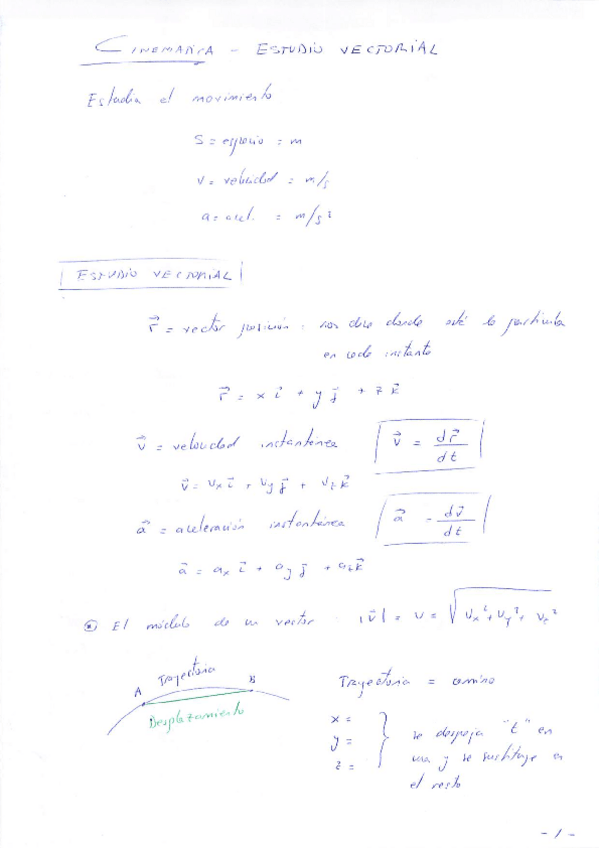 CINEMATICA - ESTUDIO VECTORIAL
Estudia el movimiento
S = espacio = m
v = velocidad = m/s
a = acel. = m/s²
ESTUDIO VECTORIAL
r⃗ = vector posición : nos dice donde está la partícula
en cada instante
r⃗ = x i⃗ + y j⃗ + z k⃗
v⃗ = velocidad instantánea v⃗ = dr⃗/dt
v⃗ = vx i⃗ + vy j⃗ + vz k⃗
a⃗ = aceleración instantánea a⃗ = dv⃗/dt
a⃗ = ax i⃗ + ay j⃗ + az k⃗
El módulo de un vector : |v⃗| = v = √(vx² + vy² + vz²)
Trayectoria
A B
Desplazamiento
Trayectoria = camino
x =
y =
z =
se despeja "t" en
una y se sustituye en
el resto
- 1 -